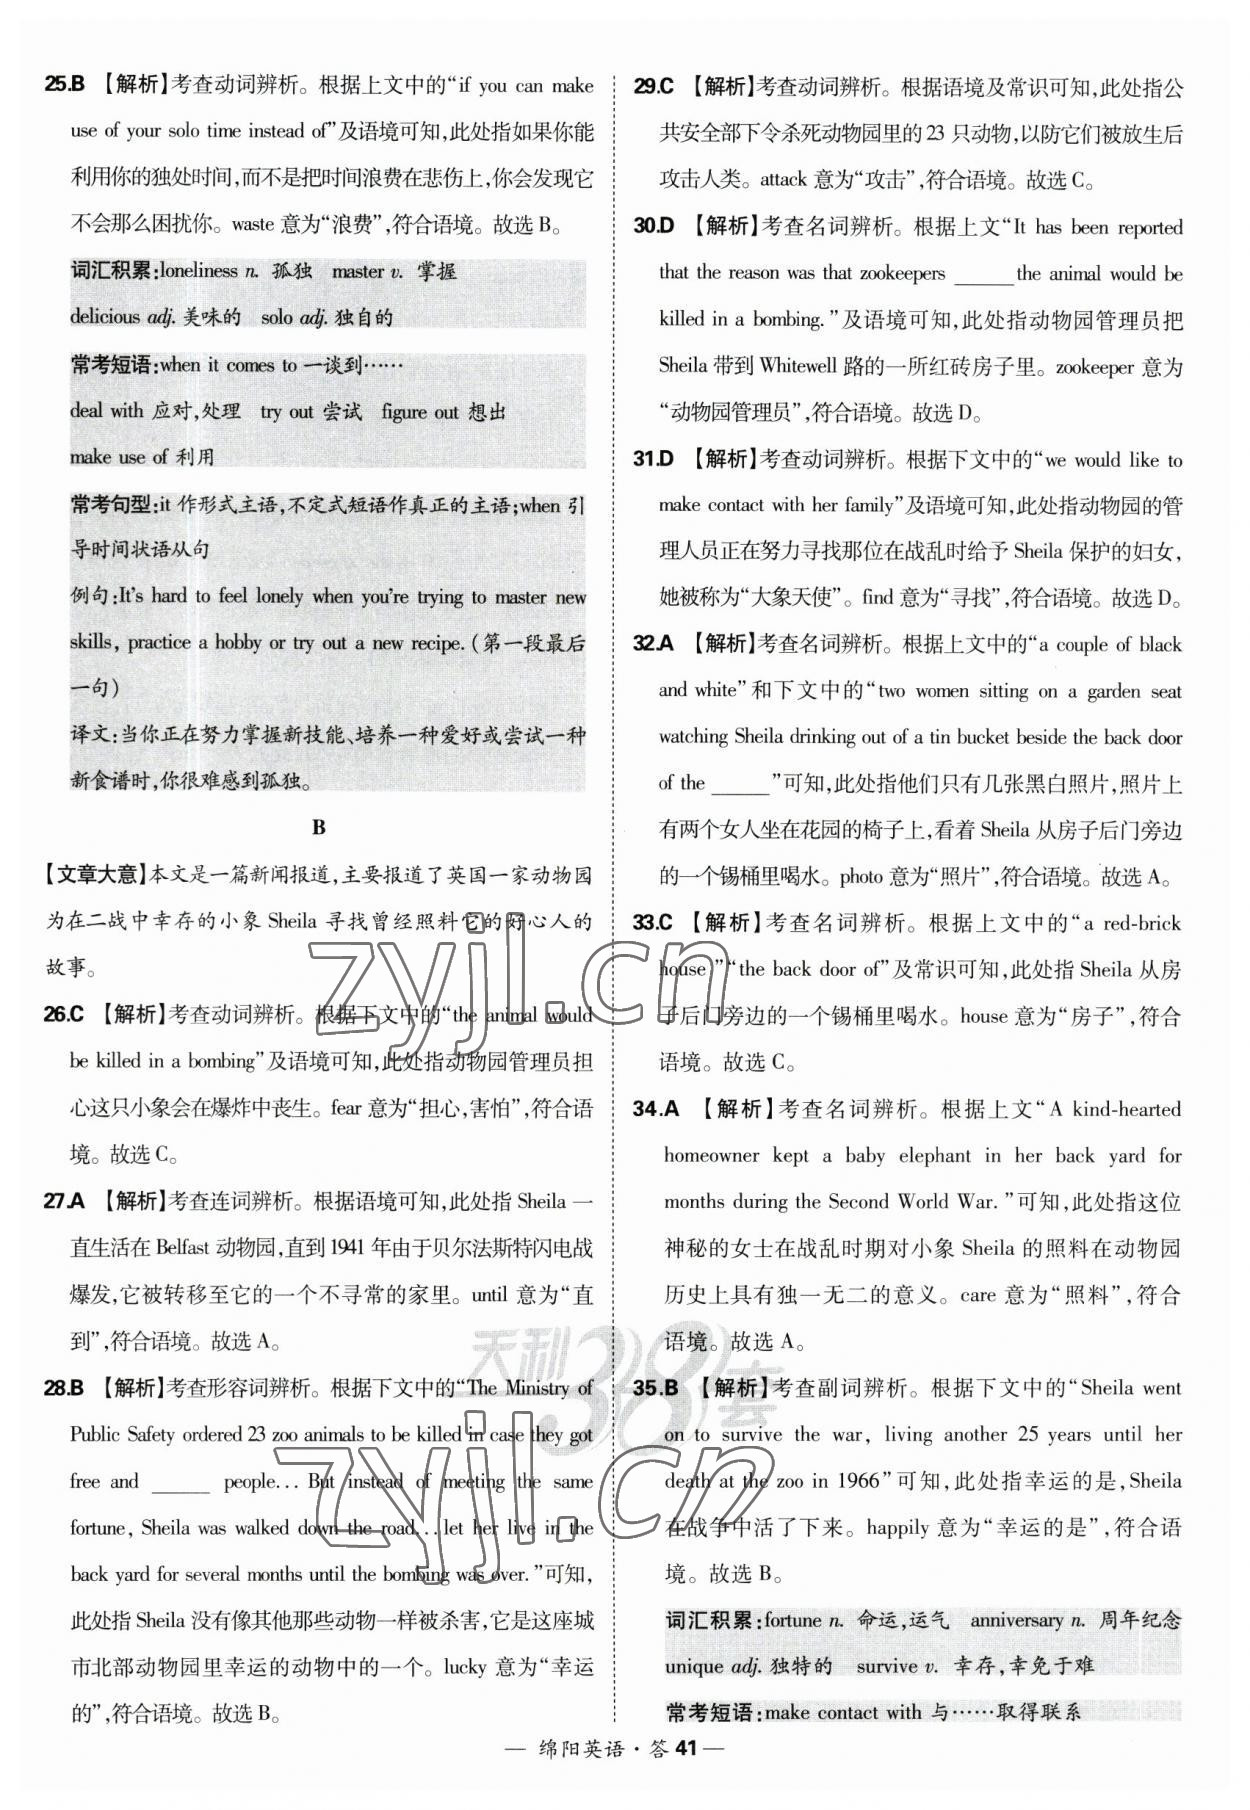 25.B 【解析】考查动词辨析。根据上文中的“if you can make
use of your solo time instead of”及语境可知,此处指如果你能
利用你的独处时间,而不是把时间浪费在悲伤上,你会发现它
不会那么困扰你。waste 意为“浪费”,符合语境。故选 B。
词汇积累:loneliness n. 孤独 master v. 掌握
delicious adj. 美味的 solo adj. 独自的
常考短语:when it comes to 一谈到……
deal with 应对,处理 try out 尝试 figure out 想出
make use of 利用
常考句型:it 作形式主语,不定式短语作真正的主语;when 引
导时间状语从句
例句:It's hard to feel lonely when you're trying to master new
skills, practice a hobby or try out a new recipe.(第一段最后
一句)
译文:当你正在努力掌握新技能、培养一种爱好或尝试一种
新食谱时,你很难感到孤独。
B
【文章大意】本文是一篇新闻报道,主要报道了英国一家动物园
为在二战中幸存的小象 Sheila 寻找曾经照料它的好心人的
故事。
26.C 【解析】考查动词辨析。根据下文中的“the animal would
be killed in a bombing”及语境可知,此处指动物园管理员担
心这只小象会在爆炸中丧生。fear 意为“担心,害怕”,符合语
境。故选 C。
27.A 【解析】考查连词辨析。根据语境可知,此处指 Sheila 一
直生活在 Belfast 动物园,直到 1941 年由于贝尔法斯特闪电战
爆发,它被转移至它的一个不寻常的家里。until 意为“直
到”,符合语境。故选 A。
28.B 【解析】考查形容词辨析。根据下文中的“The Ministry of
Public Safety ordered 23 zoo animals to be killed in case they got
free and ______ people... But instead of meeting the same
fortune, Sheila was walked down the road...let her live in the
back yard for several months until the bombing was over.”可知,
此处指 Sheila 没有像其他那些动物一样被杀害,它是这座城
市北部动物园里幸运的动物中的一个。lucky 意为“幸运
的”,符合语境。故选 B。
29.C 【解析】考查动词辨析。根据语境及常识可知,此处指公
共安全部下令杀死动物园里的 23 只动物,以防它们被放生后
攻击人类。attack 意为“攻击”,符合语境。故选 C。
30.D 【解析】考查名词辨析。根据上文“It has been reported
that the reason was that zookeepers ______ the animal would be
killed in a bombing.”及语境可知,此处指动物园管理员把
Sheila 带到 Whitewell 路的一所红砖房子里。zookeeper 意为
“动物园管理员”,符合语境。故选 D。
31.D 【解析】考查动词辨析。根据下文中的“we would like to
make contact with her family”及语境可知,此处指动物园的管
理人员正在努力寻找那位在战乱时给予 Sheila 保护的妇女,
她被称为“大象天使”。find 意为“寻找”,符合语境。故选 D。
32.A 【解析】考查名词辨析。根据上文中的“a couple of black
and white”和下文中的“two women sitting on a garden seat
watching Sheila drinking out of a tin bucket beside the back door
of the ______”可知,此处指他们只有几张黑白照片,照片上
有两个女人坐在花园的椅子上,看着 Sheila 从房子后门旁边
的一个锡桶里喝水。photo 意为“照片”,符合语境。故选 A。
33.C 【解析】考查名词辨析。根据上文中的“a red-brick
house”“the back door of”及常识可知,此处指 Sheila 从房
子后门旁边的一个锡桶里喝水。house 意为“房子”,符合
语境。故选 C。
34.A 【解析】考查名词辨析。根据上文“A kind-hearted
homeowner kept a baby elephant in her back yard for
months during the Second World War.”可知,此处指这位
神秘的女士在战乱时期对小象 Sheila 的照料在动物园
历史上具有独一无二的意义。care 意为“照料”,符合
语境。故选 A。
35.B 【解析】考查副词辨析。根据下文中的“Sheila went
on to survive the war, living another 25 years until her
death at the zoo in 1966”可知,此处指幸运的是,Sheila
在战争中活了下来。happily 意为“幸运的是”,符合语
境。故选 B。
词汇积累:fortune n. 命运,运气 anniversary n. 周年纪念
unique adj. 独特的 survive v. 幸存,幸免于难
常考短语:make contact with 与……取得联系
— 绵阳英语·答 41 —
zyjl.cn
天利38套
zyjl.cn